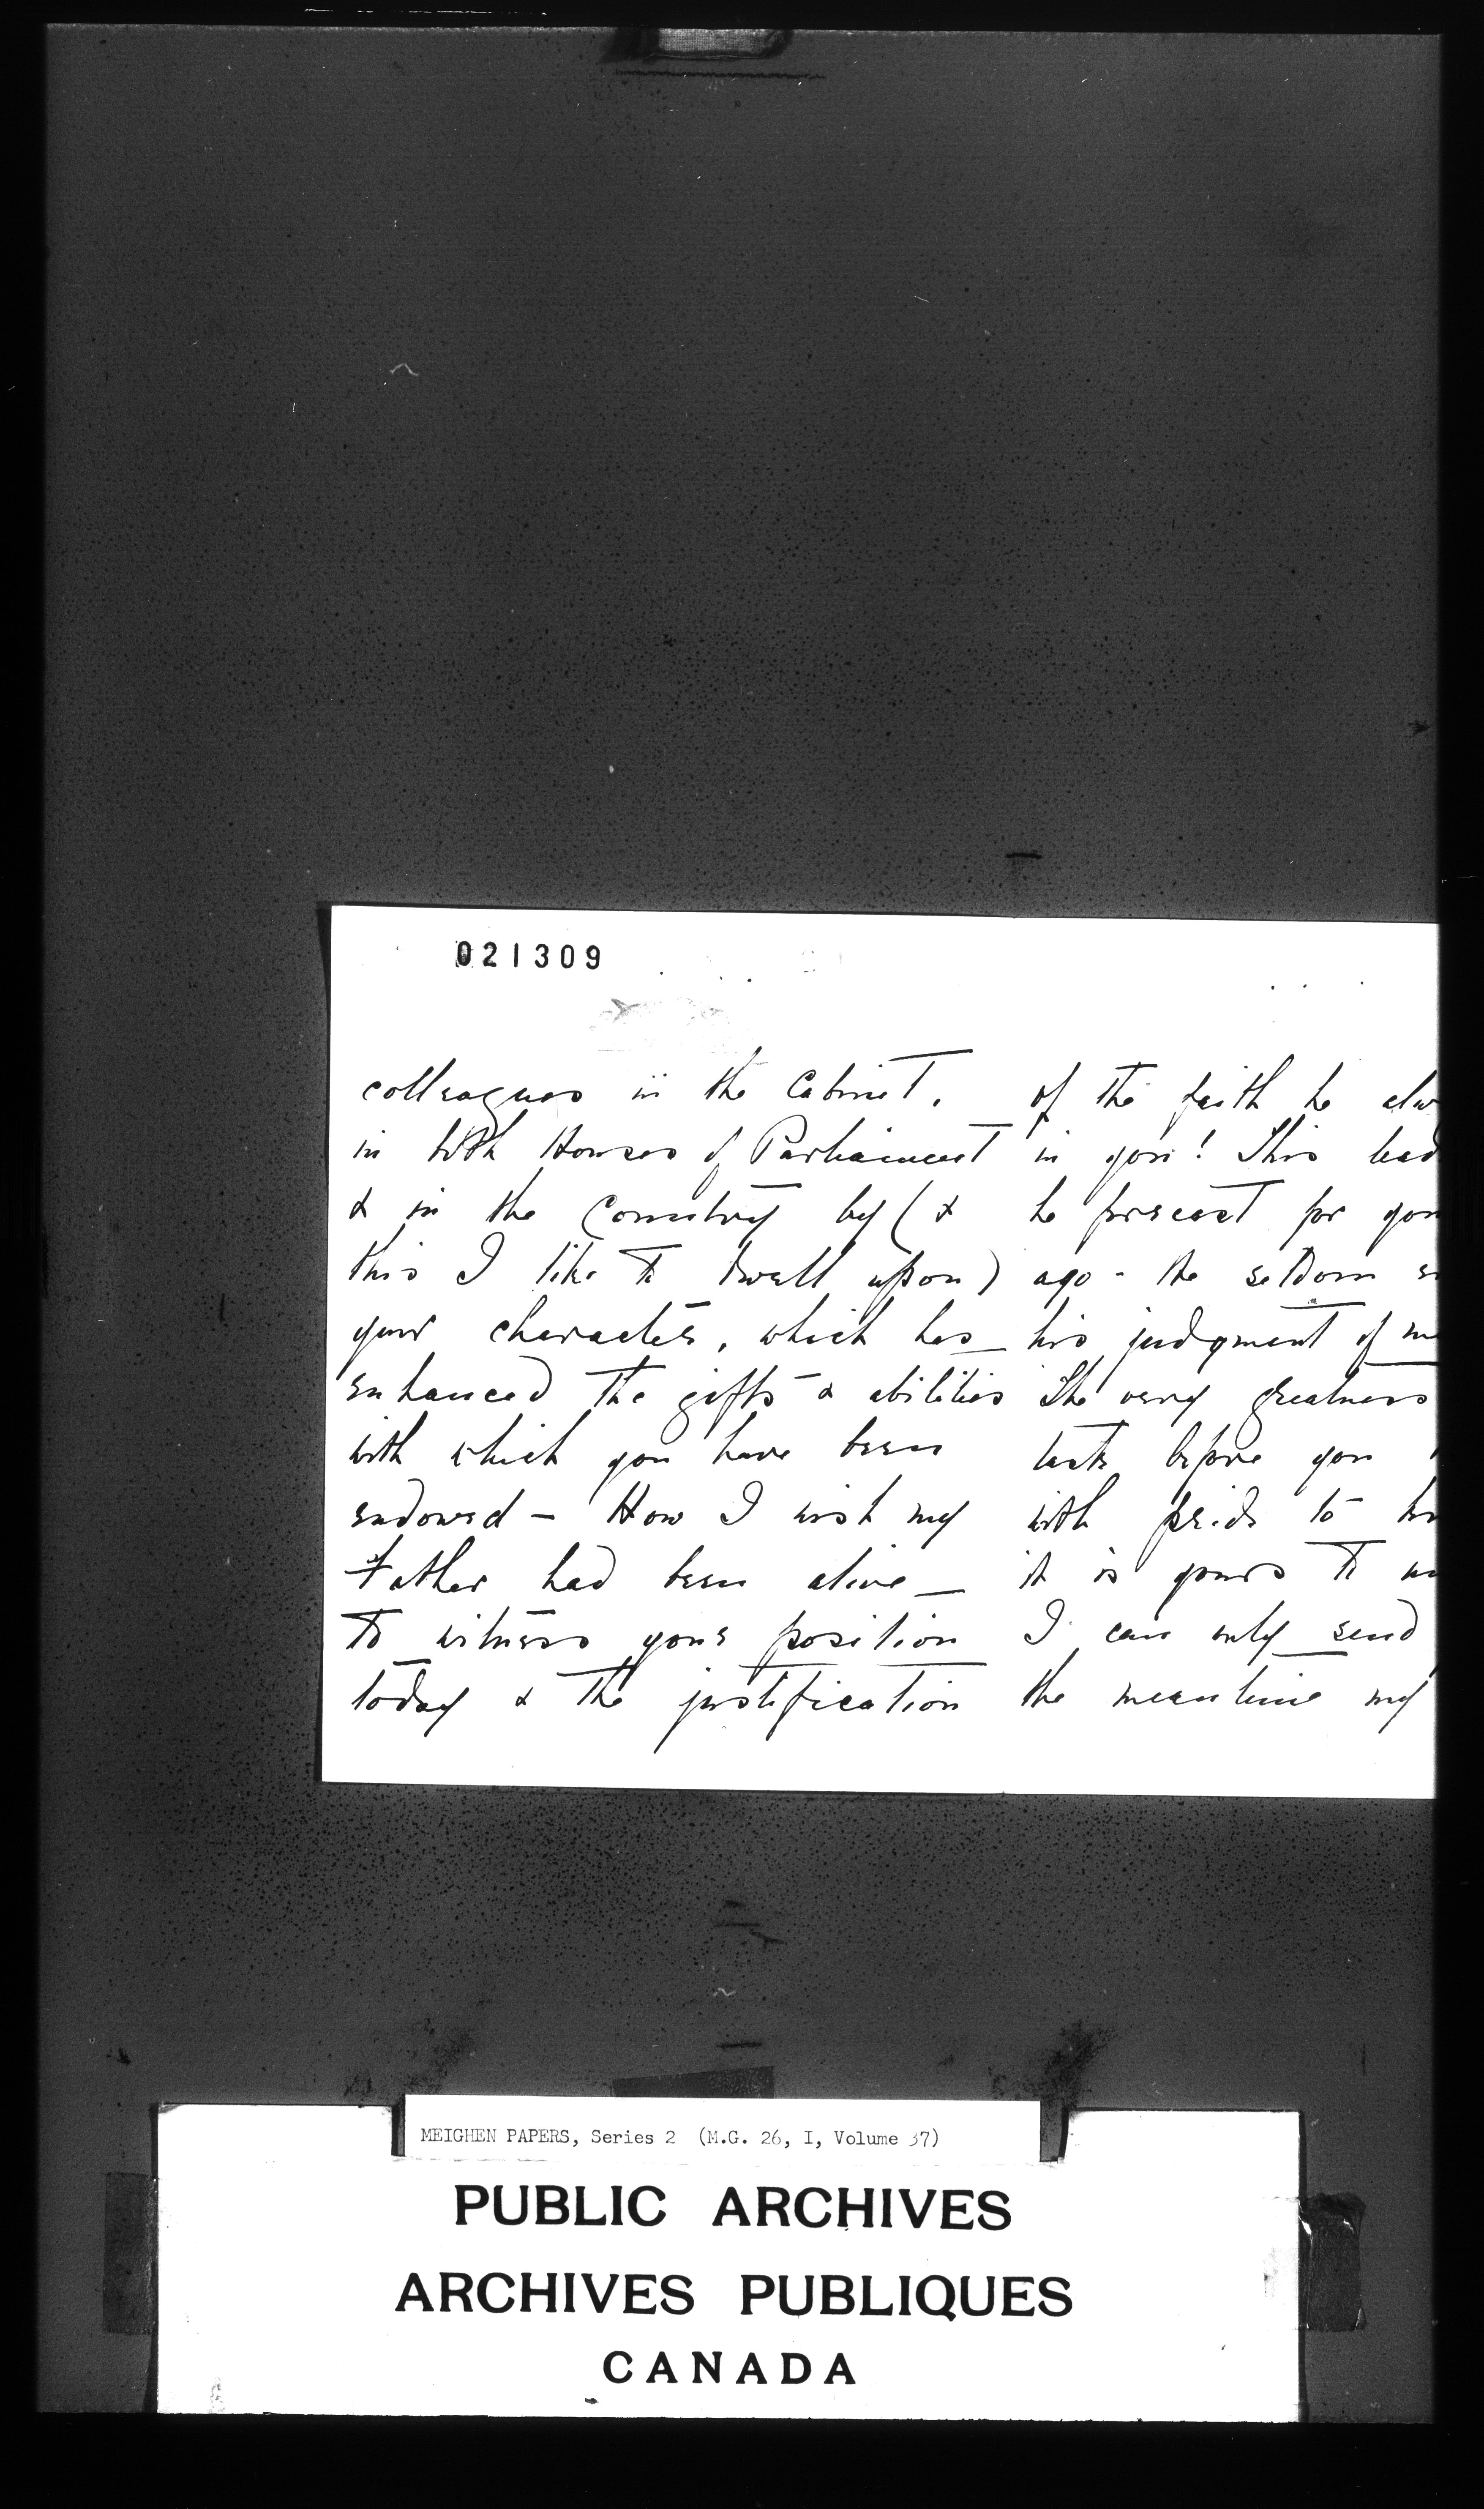 021309
colleagues in the Cabinet,
in both Houses of Parliament
& in the Country by (&
this I like to dwell upon)
your character, which has
enhanced the gifts & abilities
with which you have been
endowed — How I wish my
Father had been alive —
to witness your position
today & the justification
of the faith he alw
in you! This lead
he forecast for you
ago - He seldom
his judgment of
The very greatness
task before you
with pride to
it is yours to
I can only send
the meantime my
MEIGHEN PAPERS, Series 2 (M.G. 26, I, Volume 37)
PUBLIC ARCHIVES
ARCHIVES PUBLIQUES
CANADA